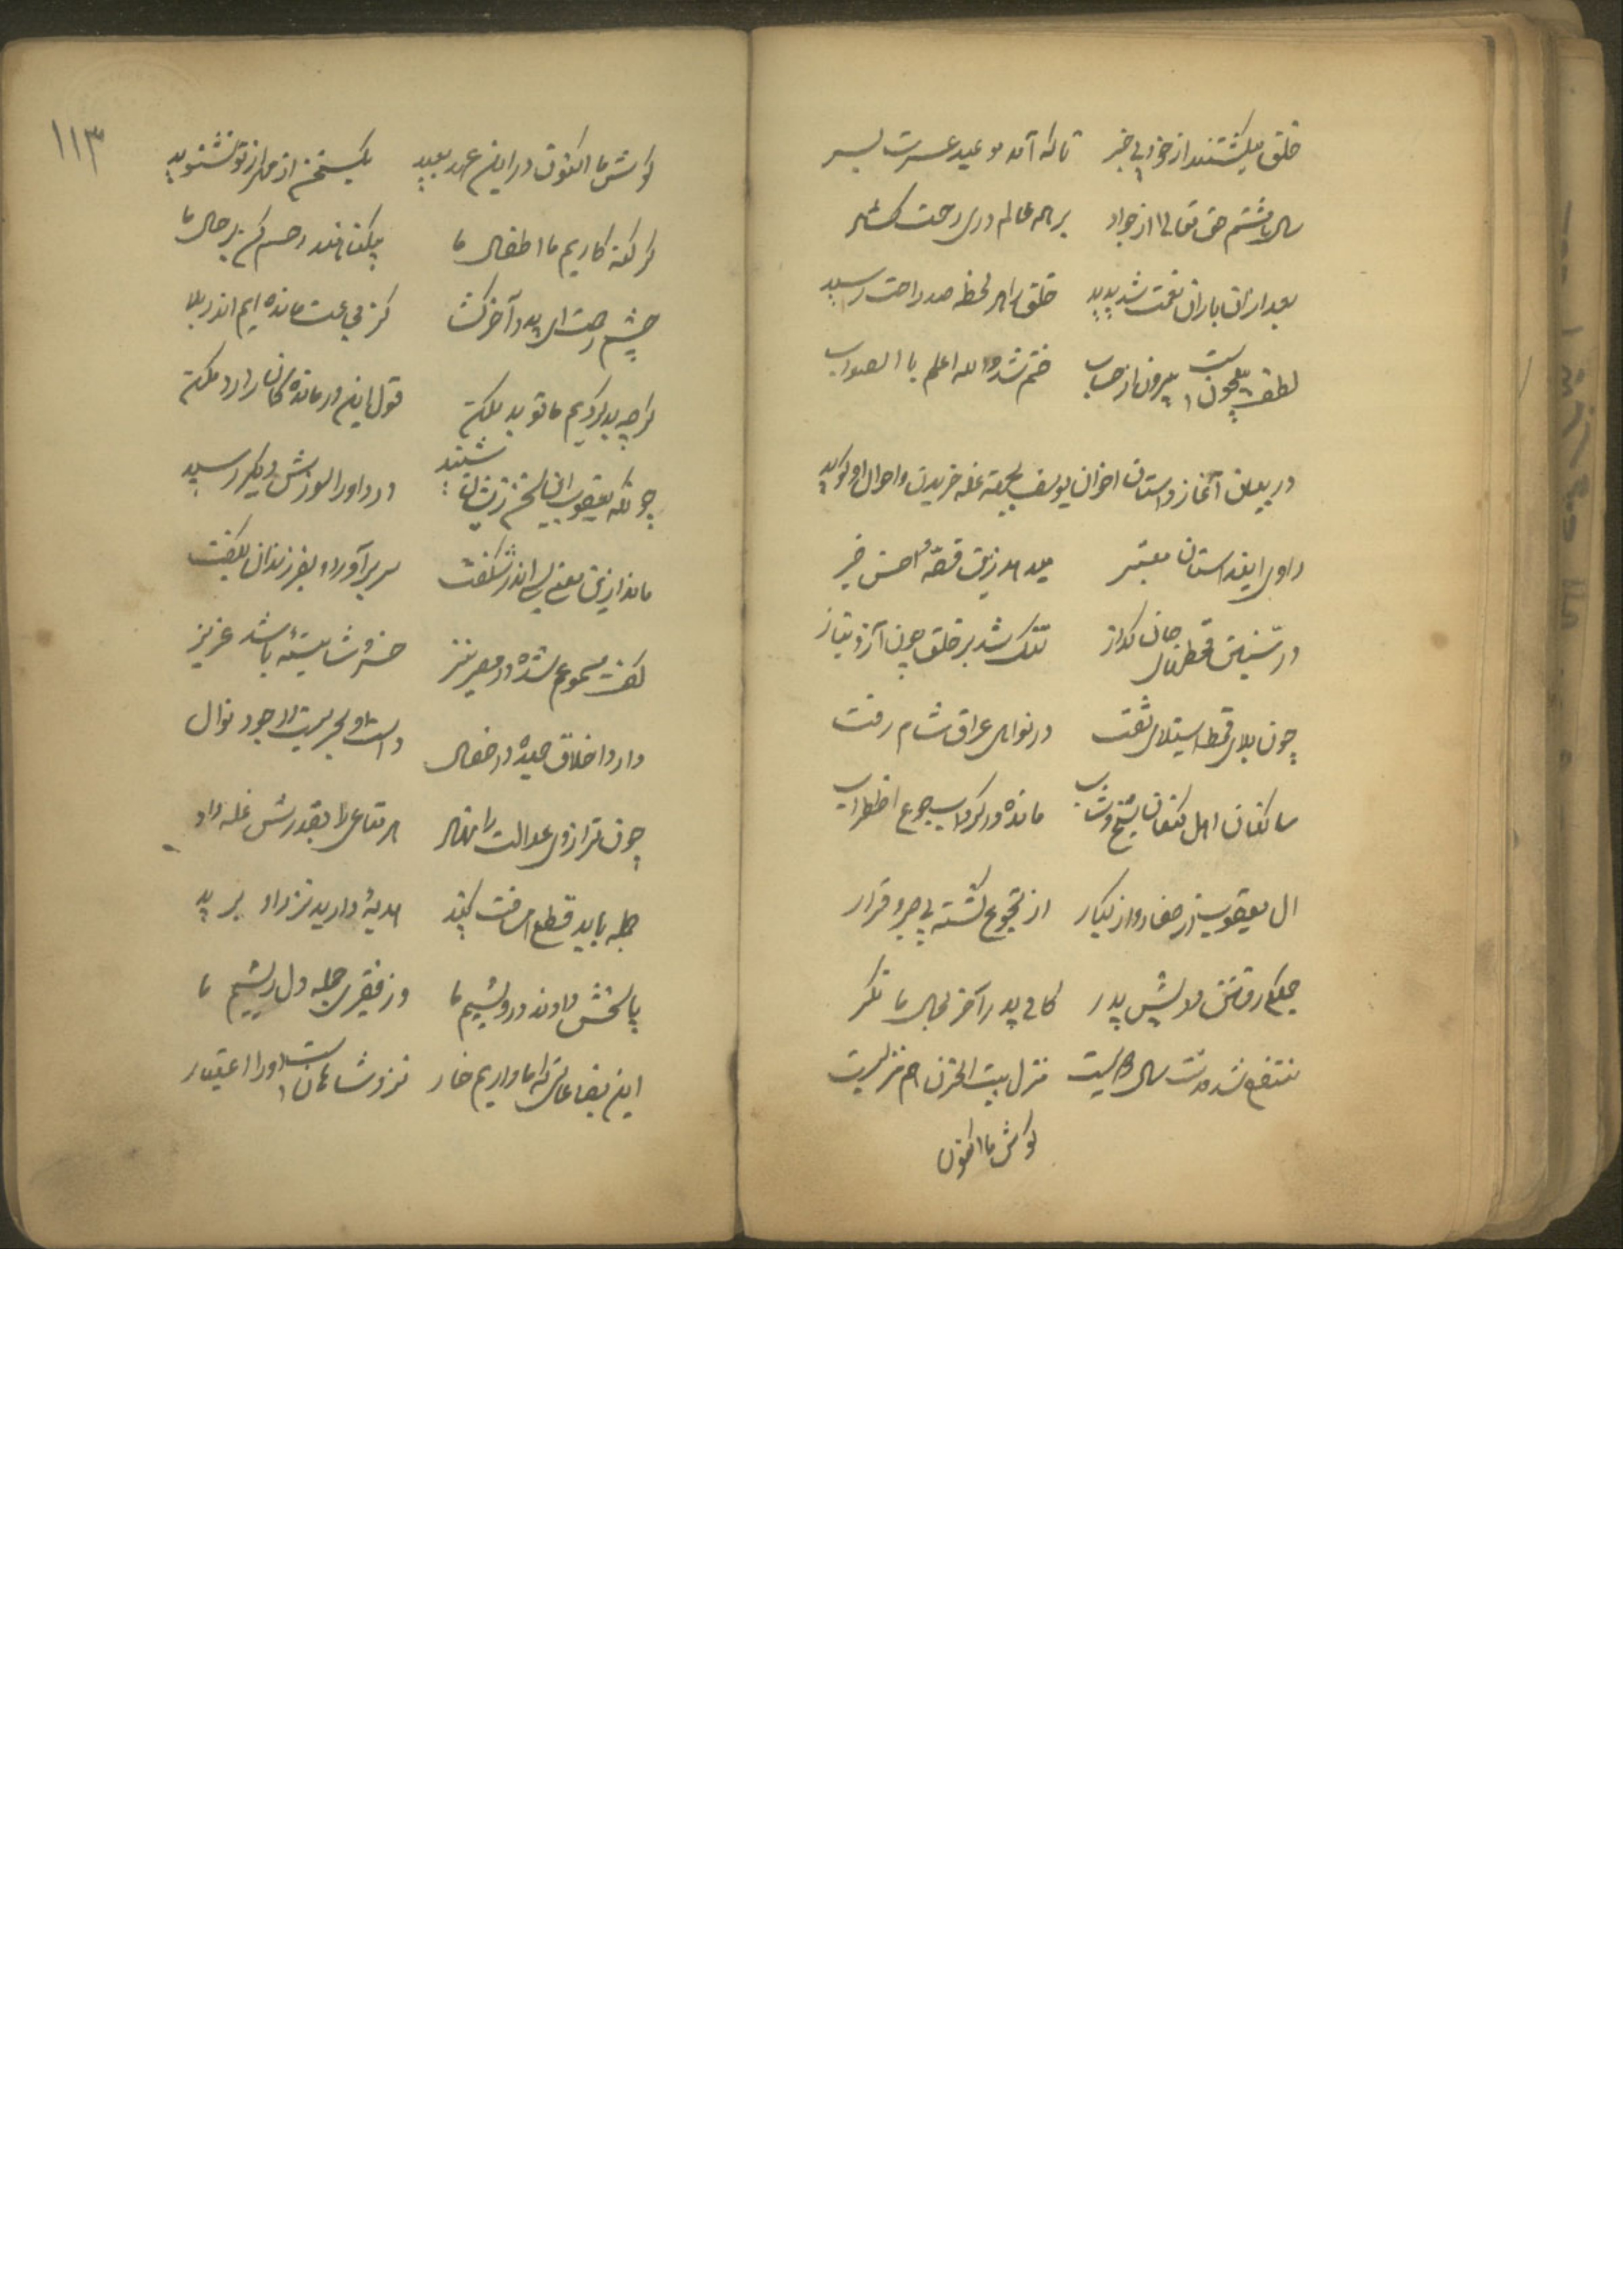 خلق میکشتند از خود بی خبر تا که آمد موعد عسرت بسر
سال هشتم حق تعالی از جواد بر همه عالم در رحمت گشاد
بعد از آن باران نعمت شد پدید خلق را هر لحظه صد راحت رسید
لطف بیچون است بیرون از حساب ختم شد والله اعلم با الصواب
در بیان آغاز داستان اخوان یوسف بجهة غله خریدن و احوال او گوید
راوی این داستان معتبر میدهد زین قصّه احسن خبر
در سنین قحط سال جان گداز تنک شد بر خلق چون آز و نیاز
چون بلای قحط استیلای تفت در نوای عراق شام رفت
ساکنان اهل کنعان شیخ و شاب مانده در گرداب جوع اضطراب
ال یعقوب از صغار و از کبار از تجوع گشته بی صبر و قرار
جملکی رفتند پیش پدر کای پدر آخر بحال ما نگر
منتفع شد مدت سال دویست منزل بیت الحزن هم منزلیست
گوش ما اکنون
١١٣
گوش ما اکنون در این عهد بعید یکسخن از مهر از تو نشنوید
گر گنه کاریم ما اطفال ما بیگناهند رحم کن بر حال ما
چشم رحمت ای پدر آخر گشا کز مجاعت مانده ایم اندر بلا
گرچه بد کردیم ما تو بد مکن قول این درماندگان را رد مکن
چونکه یعقوب این سخن زیشان شنید درد او را سوزش دیگر رسید
ماند ازین معنی بسی اندر شگفت سر بر آورد و بفرزندان بگفت
گفت مسموعم شده در مصر نیز خسرو شایسته باشد عزیز
دارد اخلاق حمیده در خصال دست او بحریست از جود نوال
چون ترازوی عدالت را نهاد هر متاعی را بقدرش غله داد
جمله باید قطع مسافت کنید هدیهٔ دارید نزد او برید
پاسخش دادند درویشیم ما وز فقیری جمله دل ریشیم ما
این بضاعاتی که ما داریم خار نزد شاهان است او را اعتبار